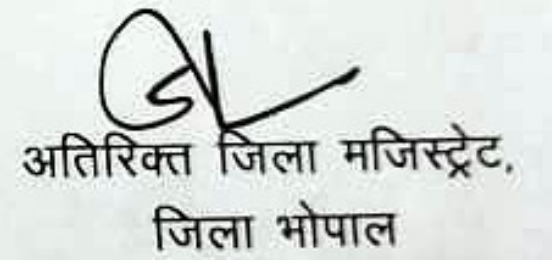 अतिरिक्त जिला मजिस्ट्रेट,
जिला भोपाल